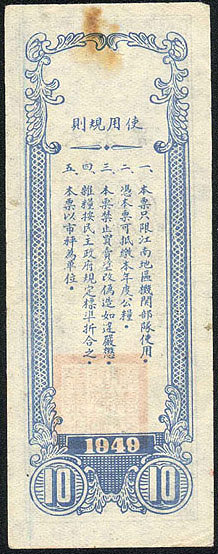 使用規則
一、本票只限江南地區機關部隊使用。
二、憑本票可抵繳本年度公糧。
三、本票禁止買賣塗改偽造如違嚴懲。
四、雜糧按民主政府規定標準折合之。
五、本票以市秤為單位。
1949
10 10